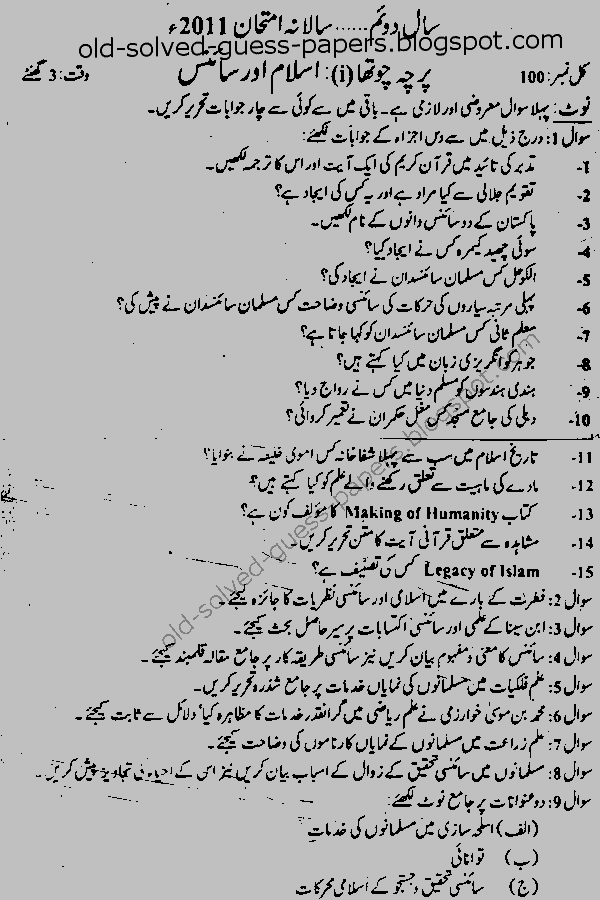 سال دوئم...... سالانہ امتحان 2011ء
old-solved-guess-papers.blogspot.com
کل نمبر: 100 پرچہ چوتھا (i): اسلام اور سائنس وقت: 3 گھنٹے
نوٹ: پہلا سوال معروضی اور لازمی ہے۔ باقی میں سے کوئی سے چار جوابات تحریر کریں۔
سوال 1: درج ذیل میں سے دس اجزاء کے جوابات لکھئے:
1- تدبر کی تائید میں قرآن کریم کی ایک آیت اور اس کا ترجمہ لکھیں۔
2- تقویم جلالی سے کیا مراد ہے اور یہ کس کی ایجاد ہے؟
3- پاکستان کے دو سائنس دانوں کے نام لکھیں۔
4- سوئی چھید کیمرہ کس نے ایجاد کیا؟
5- الکوحل کس مسلمان سائنسدان نے ایجاد کی؟
6- پہلی مرتبہ سیاروں کی حرکات کی سائنسی وضاحت کس مسلمان سائنسدان نے پیش کی؟
7- معلم ثانی کس مسلمان سائنسدان کو کہا جاتا ہے؟
8- جوہر کو انگریزی زبان میں کیا کہتے ہیں؟
9- ہندی ہندسوں کو مسلم دنیا میں کس نے رواج دیا؟
10- دہلی کی جامع مسجد کس مغل حکمران نے تعمیر کروائی؟
11- تاریخ اسلام میں سب سے پہلا شفاخانہ کس اموی خلیفہ نے بنوایا؟
12- مادے کی ماہیت سے تعلق رکھنے والے علم کو کیا کہتے ہیں؟
13- کتاب Making of Humanity کا مؤلف کون ہے؟
14- مشاہدہ سے متعلق قرآنی آیت کا متن تحریر کریں۔
15- Legacy of Islam کس کی تصنیف ہے؟
سوال 2: فطرت کے بارے میں اسلامی اور سائنسی نظریات کا جائزہ لیجئے۔
سوال 3: ابن سینا کے علمی اور سائنسی اکتسابات پر سیر حاصل بحث کیجئے۔
سوال 4: سائنس کا معنی و مفہوم بیان کریں نیز سائنسی طریقہ کار پر جامع مقالہ قلمبند کیجئے۔
سوال 5: علم فلکیات میں مسلمانوں کی نمایاں خدمات پر جامع شذرہ تحریر کریں۔
سوال 6: محمد بن موسیٰ خوارزمی نے علم ریاضی میں گرانقدر خدمات کا مظاہرہ کیا' دلائل سے ثابت کیجئے۔
سوال 7: علم زراعت میں مسلمانوں کے نمایاں کارناموں کی وضاحت کیجئے۔
سوال 8: مسلمانوں میں سائنسی تحقیق کے زوال کے اسباب بیان کریں نیز اس کے احیاء کی تجاویز پیش کریں۔
سوال 9: دو عنوانات پر جامع نوٹ لکھئے:
(الف) اسلحہ سازی میں مسلمانوں کی خدمات
(ب) توانائی
(ج) سائنسی تحقیق و جستجو کے اسلامی محرکات
old-solved-guess-papers.blogspot.com